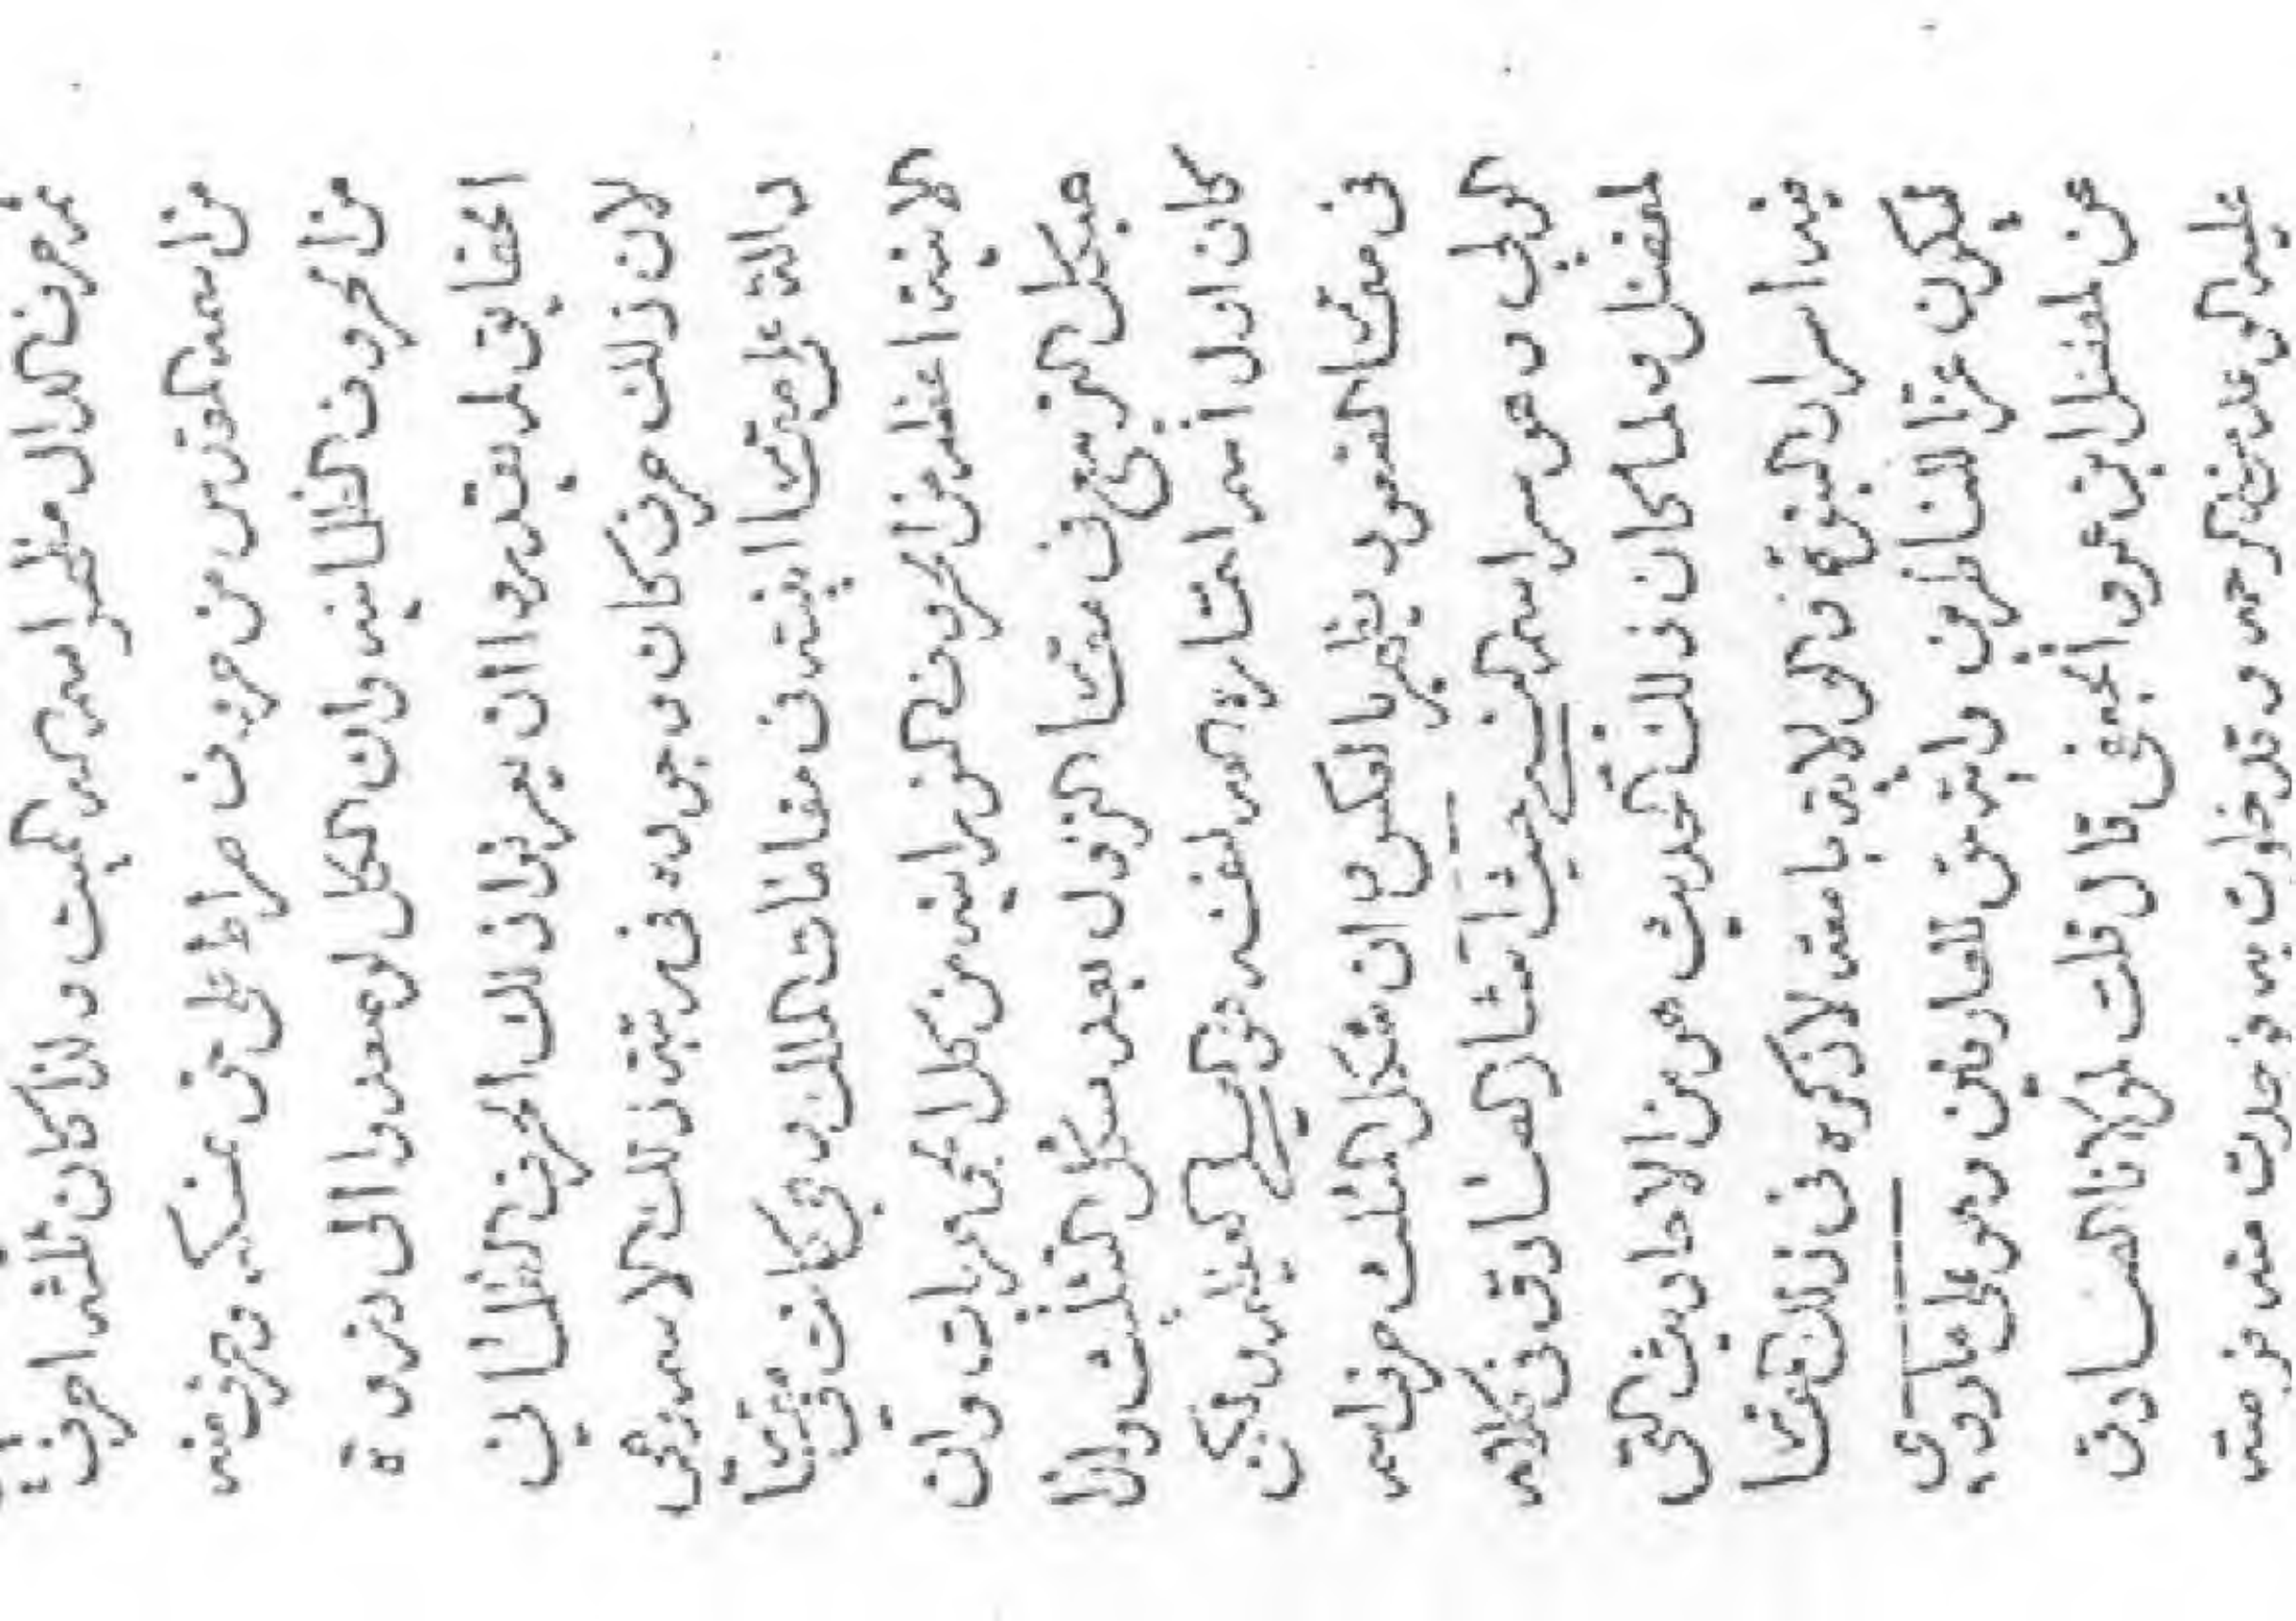 عن حرف الدال مظهر اسم ركن البيت ولذا كان ثلثة احرف
من اسمه القدوس من حروف صراط علي حق نمسكه وحرف منه
من الحروف الظلمانيه وان الكل لو صعدوا الى ذروة
الحقايق لم يقدروا ان يعرفوا ذلك الحرف الظلماني
لان ذلك حرف كان وجوده في رتبة ذلك الاسم
دالة على مقام في مقامات الملك كانت في مقام
اعظم من الحروف النورانيه من كل وان
هيكل التربيع في مقام النزول بعد شكل التثليث ولذا
كان اول اسم اختاره الله لنفسه هو العلي العظيم ولكن
في مقام الصعود يظهر بالعكس وان شكل المثلث حرف اسم
الولي وهو سر اسم الحسن حيث اشار الصادق في كلامه
لمفضل ولما كان ذلك الحديث هو من الاحاديث التي
فيها اسرار النبوة والولاية لاذكره في ذلك المقام
ليكون عزا للناظرين وآية للعارفين وهو على ما روي
عن المفضل ابن عمرو الجعفي قال قلت لمولانا الصادق
عليه الرحمه وقد خلوت به وجدت منه فرصة